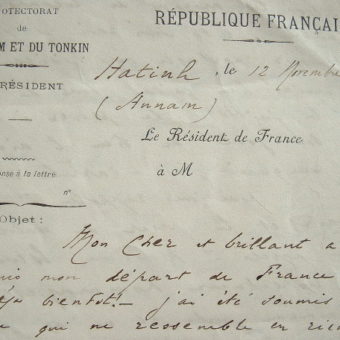 OTECTORAT
de
M ET DU TONKIN
RÉSIDENT
onse à la lettre
n°
Objet :
RÉPUBLIQUE FRANÇAI
Hatinh, le 12 Novembre
(Annam)
Le Résident de France
à M
Mon Cher et brillant a
mon départ de France
bientôt! - j'ai été soumis
qui ne ressemble en rien